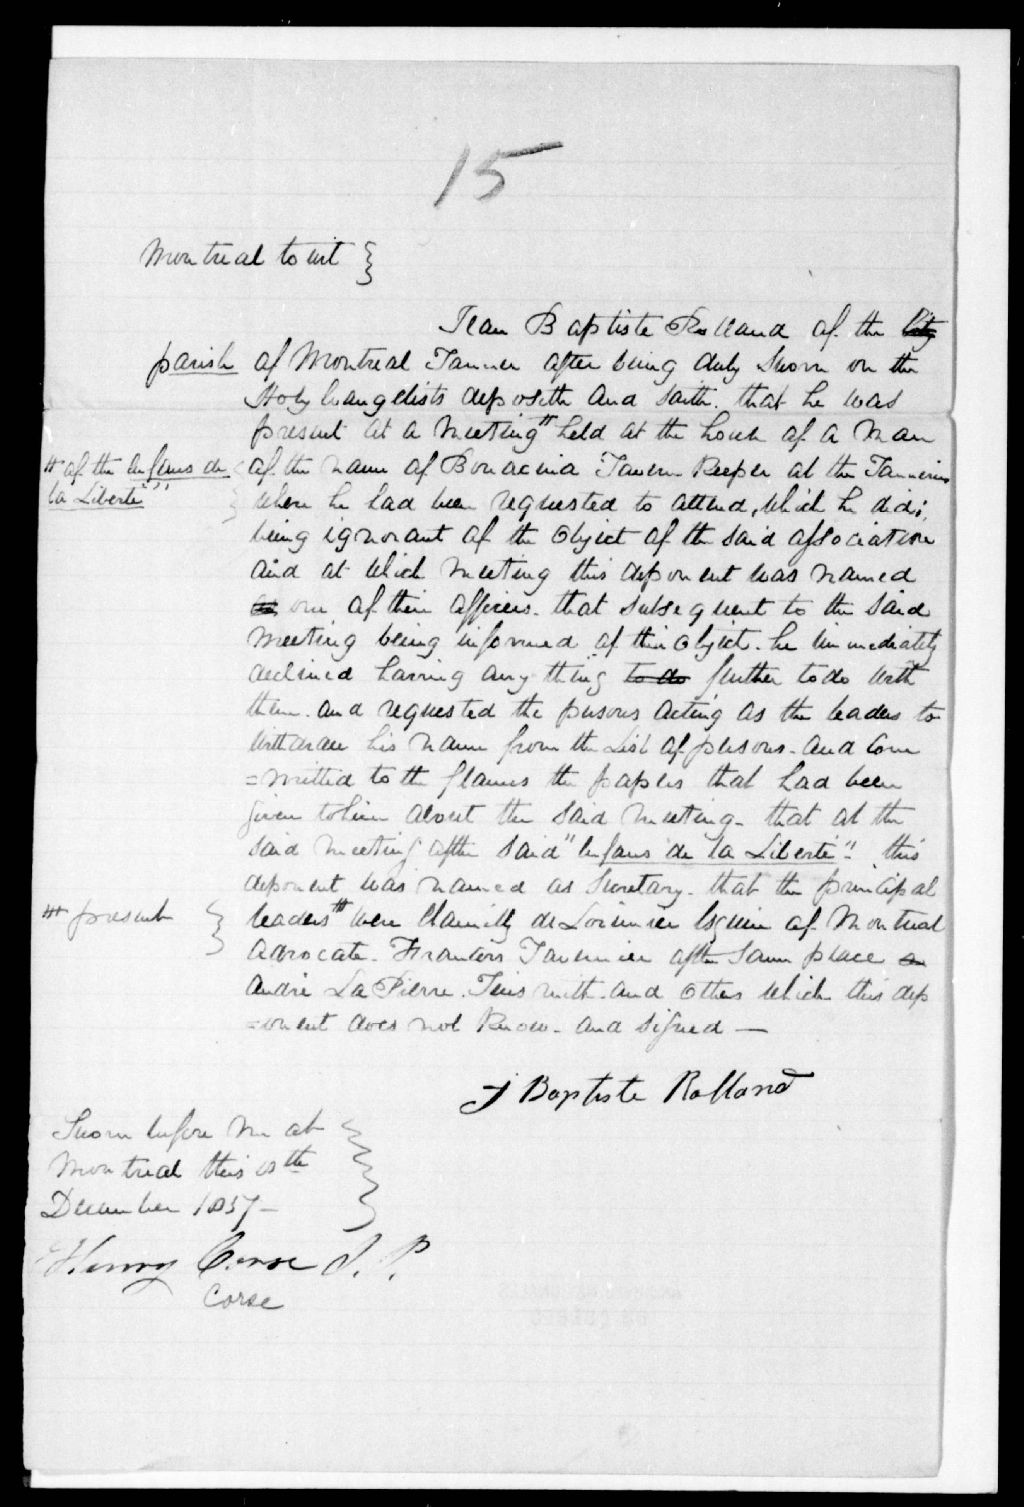 15
Montreal to wit
Jean Baptiste Rolland of the City
parish of Montreal Tanner after being duly sworn on the
Holy Evangelists deposeth and saith. that he was
present at a Meeting # held at the house of a Man
# of the Enfans de
la Liberté"
of the name of Bonacina Tavern Keeper at the Tanneries
where he had been requested to attend, which he did;
being ignorant of the Object of the said association
and at which meeting this deponent was named
one of their officers. that subsequent to the said
Meeting being informed of their object. he immediately
declined having any thing to do further to do with
them. and requested the persons acting as the leaders to
withdraw his name from the List of persons. and Com
=mitted to the flames the papers that had been
given to him about the said meeting. that at the
said meeting of the said "Enfans de la Liberté". this
deponent was named as Secretary. that the principal
## present
leaders ## were Chamilly de Lorimier Esquire of Montreal
Advocate. François Tavernier of the same place
André La Pierre. Tins smith. and Others which this dep
=onent does not Know. and signed —
J Baptiste Rolland
Sworn before me at
Montreal this th
December 1837 -
Henry Corse J. P.
Corse